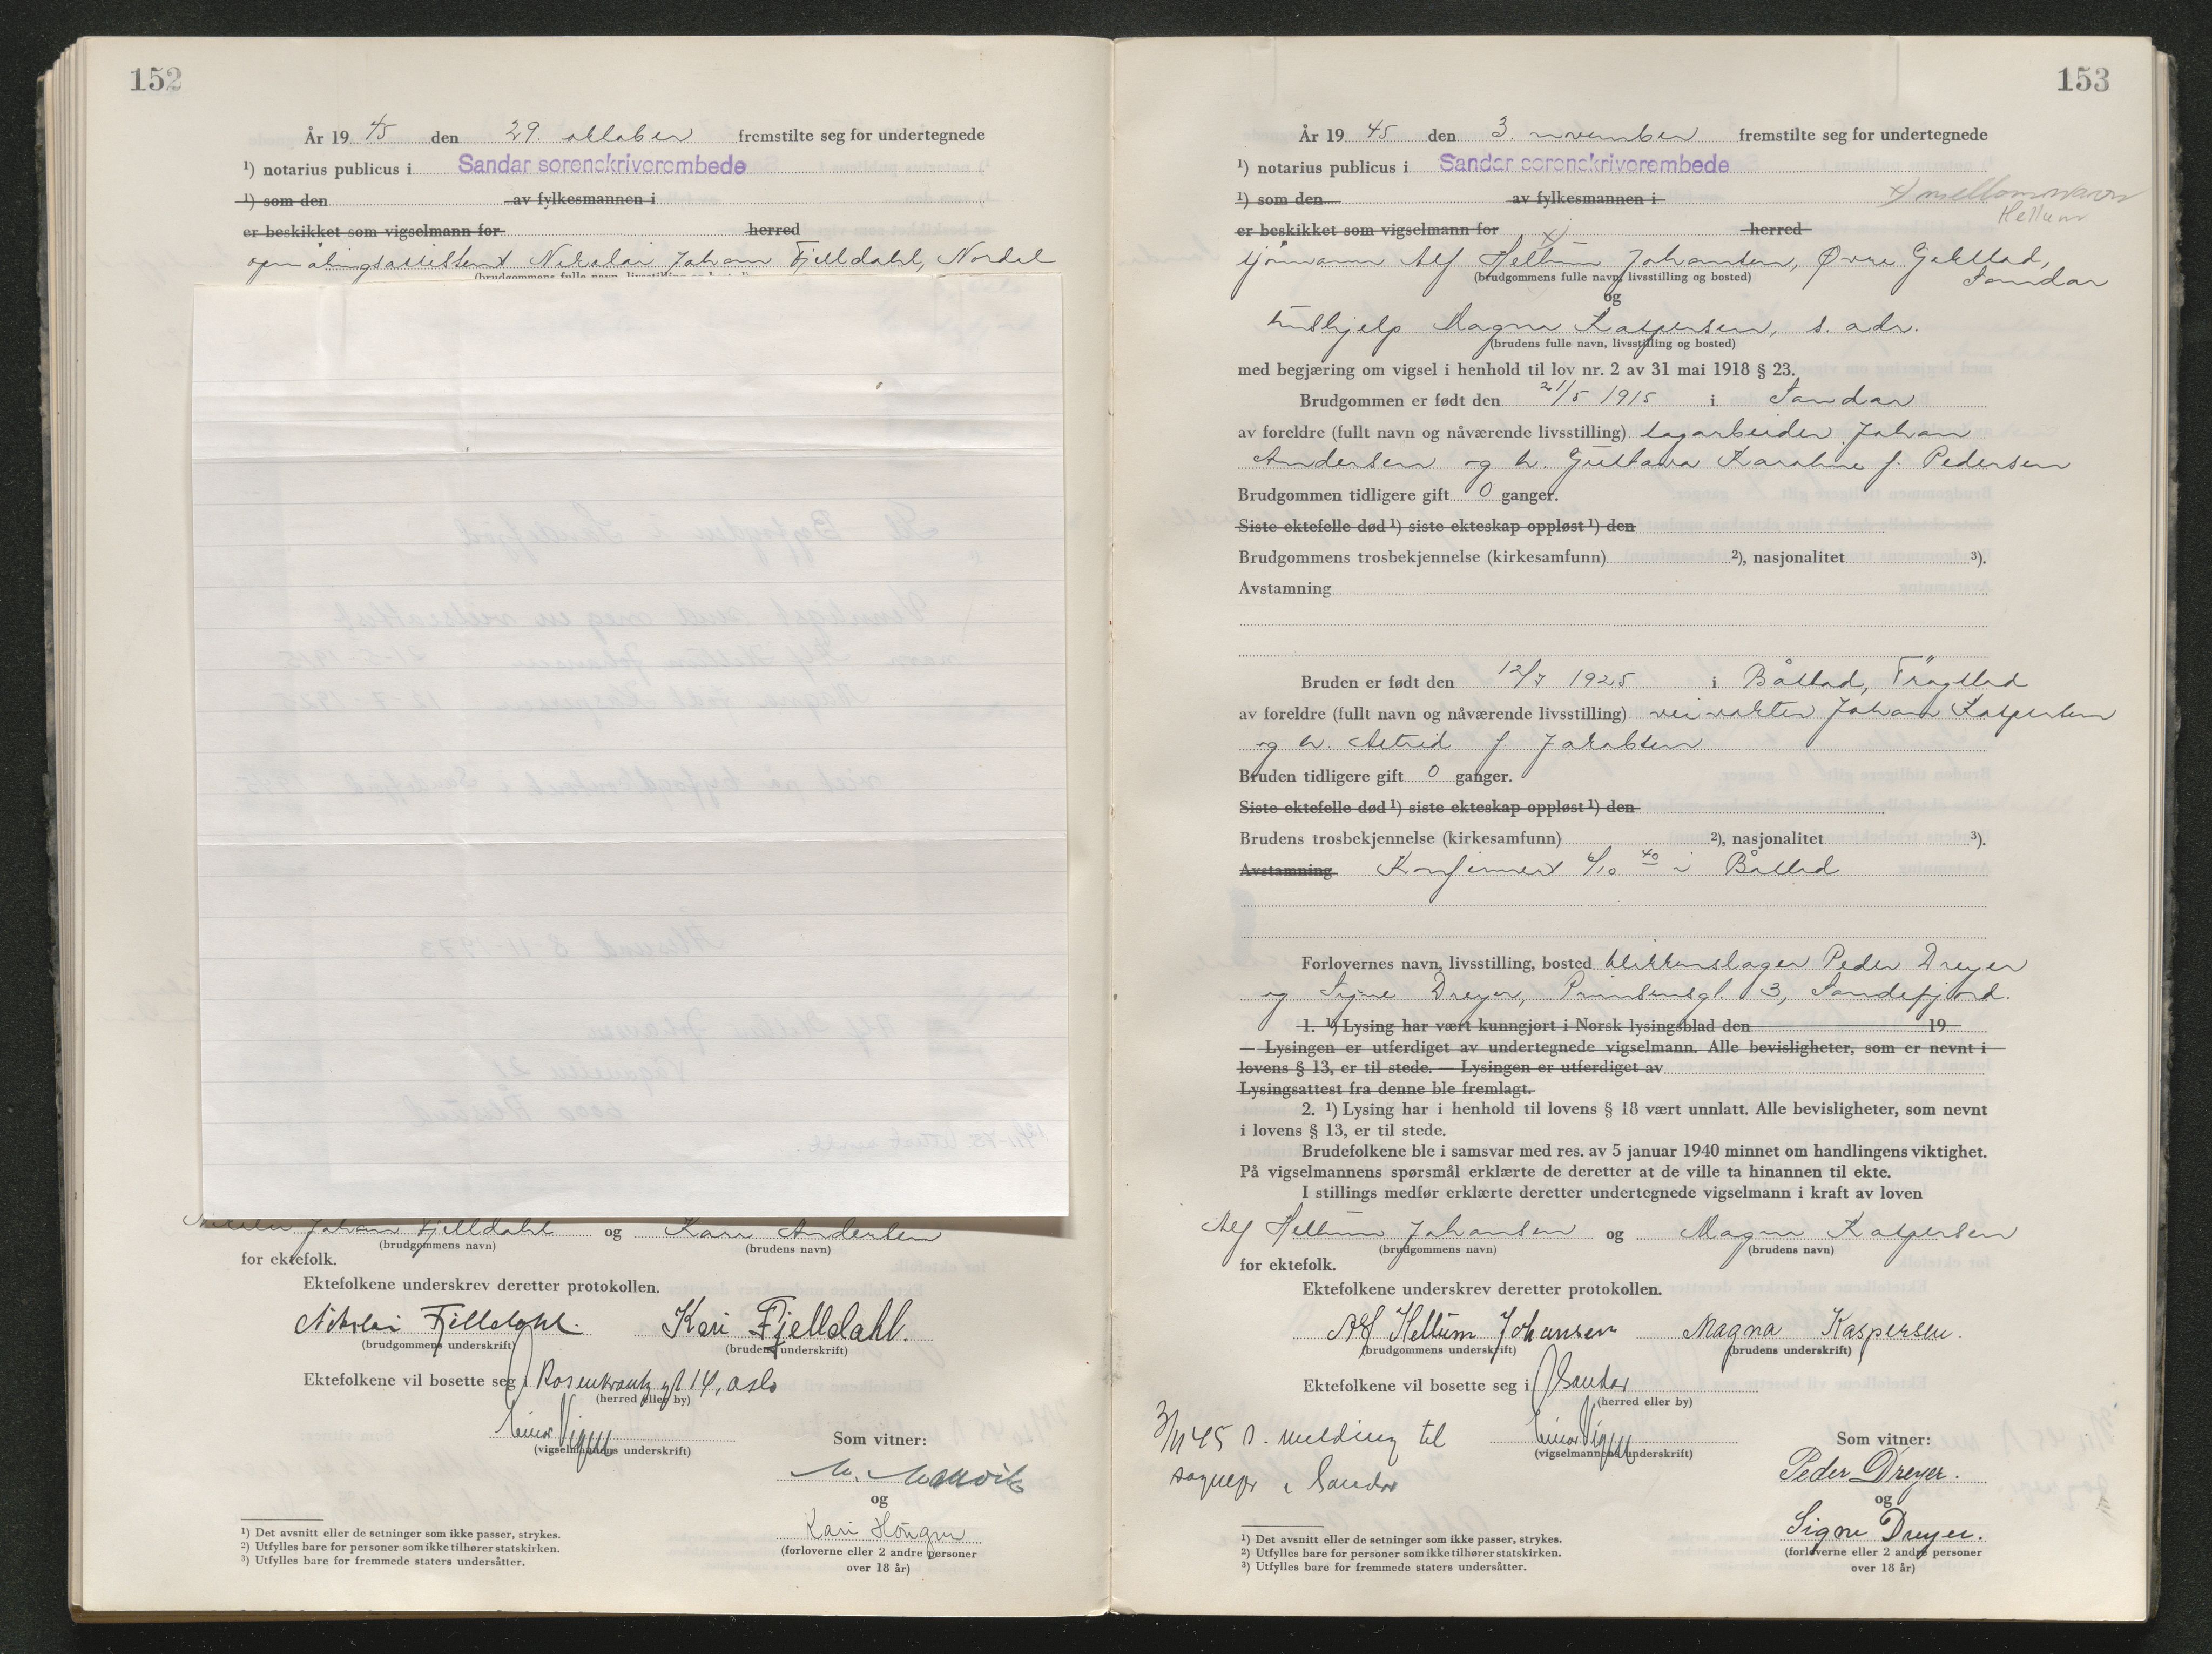 152
År 19 45 den 29. oktober fremstilte seg for undertegnede
¹) notarius publicus i Sandar sorenskriverembede
¹) som den av fylkesmannen i
er beskikket som vigselmann for herred
opmålingsassistent Nikolai Johan Fjelldahl, Nordel
Nikolai Johan Fjelldahl og Kari Andersen
(brudgommens navn) (brudens navn)
for ektefolk.
Ektefolkene underskrev deretter protokollen.
Nikolai Fjelldahl. Kari Fjelldahl.
(brudgommens underskrift) (brudens underskrift)
Ektefolkene vil bosette seg i Rosenkrantz gt 14, Oslo
(herred eller by)
(vigselmannens underskrift)
Som vitner:
og
Kari
(forloverne eller 2 andre personer
over 18 år)
¹) Det avsnitt eller de setninger som ikke passer, strykes.
²) Utfylles bare for personer som ikke tilhører statskirken.
³) Utfylles bare for fremmede staters undersåtter.
153
År 19 45 den 3. november fremstilte seg for undertegnede
¹) notarius publicus i Sandar sorenskriverembede
¹) som den av fylkesmannen i
x) mellomnavn
Hellum
er beskikket som vigselmann for herred
x)
sjømann Alf Hellum Johansen, Øvre Gokstad,
Sandar
(brudgommens fulle navn, livsstilling og bosted)
og
hushjelp Magna Kaspersen, s. adr.
(brudens fulle navn, livsstilling og bosted)
med begjæring om vigsel i henhold til lov nr. 2 av 31 mai 1918 § 23.
Brudgommen er født den 21/5 1915 i Sandar
av foreldre (fullt navn og nåværende livsstilling) sagarbeider Johan
Andersen og h. Gustava Karoline f. Pedersen
Brudgommen tidligere gift 0 ganger.
Siste ektefelle død ¹) siste ekteskap oppløst ¹) den
Brudgommens trosbekjennelse (kirkesamfunn) ²), nasjonalitet ³).
Avstamning
Bruden er født den 12/7 1925 i Båstad, Trøgstad
av foreldre (fullt navn og nåværende livsstilling) veivokter Johan Kaspersen
og h. Astrid f. Jakobsen
Bruden tidligere gift 0 ganger.
Siste ektefelle død ¹) siste ekteskap oppløst ¹) den
Brudens trosbekjennelse (kirkesamfunn) ²), nasjonalitet ³).
Avstamning Konfirmert 6/10 40 i Båstad
Forlovernes navn, livsstilling, bosted blikkenslager Peder Dreyer
og Signe Dreyer, Prinsensgt. 3, Sandefjord.
1. ¹) Lysing har vært kunngjort i Norsk lysingsblad den 19
— Lysingen er utferdiget av undertegnede vigselmann. Alle bevisligheter, som er nevnt i
lovens § 13, er til stede. — Lysingen er utferdiget av
Lysingsattest fra denne ble fremlagt.
2. ¹) Lysing har i henhold til lovens § 18 vært unnlatt. Alle bevisligheter, som nevnt
i lovens § 13, er til stede.
Brudefolkene ble i samsvar med res. av 5 januar 1940 minnet om handlingens viktighet.
På vigselmannens spørsmål erklærte de deretter at de ville ta hinannen til ekte.
I stillings medfør erklærte deretter undertegnede vigselmann i kraft av loven
Alf Hellum Johansen og Magna Kaspersen
(brudgommens navn) (brudens navn)
for ektefolk.
Ektefolkene underskrev deretter protokollen.
Alf Hellum Johansen Magna Kaspersen.
(brudgommens underskrift) (brudens underskrift)
Ektefolkene vil bosette seg i Sandar
(herred eller by)
3/11 45 s. melding til
sognepr i Sandar
(vigselmannens underskrift)
Som vitner:
Peder Dreyer.
og
Signe Dreyer.
(forloverne eller 2 andre personer
over 18 år)
¹) Det avsnitt eller de setninger som ikke passer, strykes.
²) Utfylles bare for personer som ikke tilhører statskirken.
³) Utfylles bare for fremmede staters undersåtter.